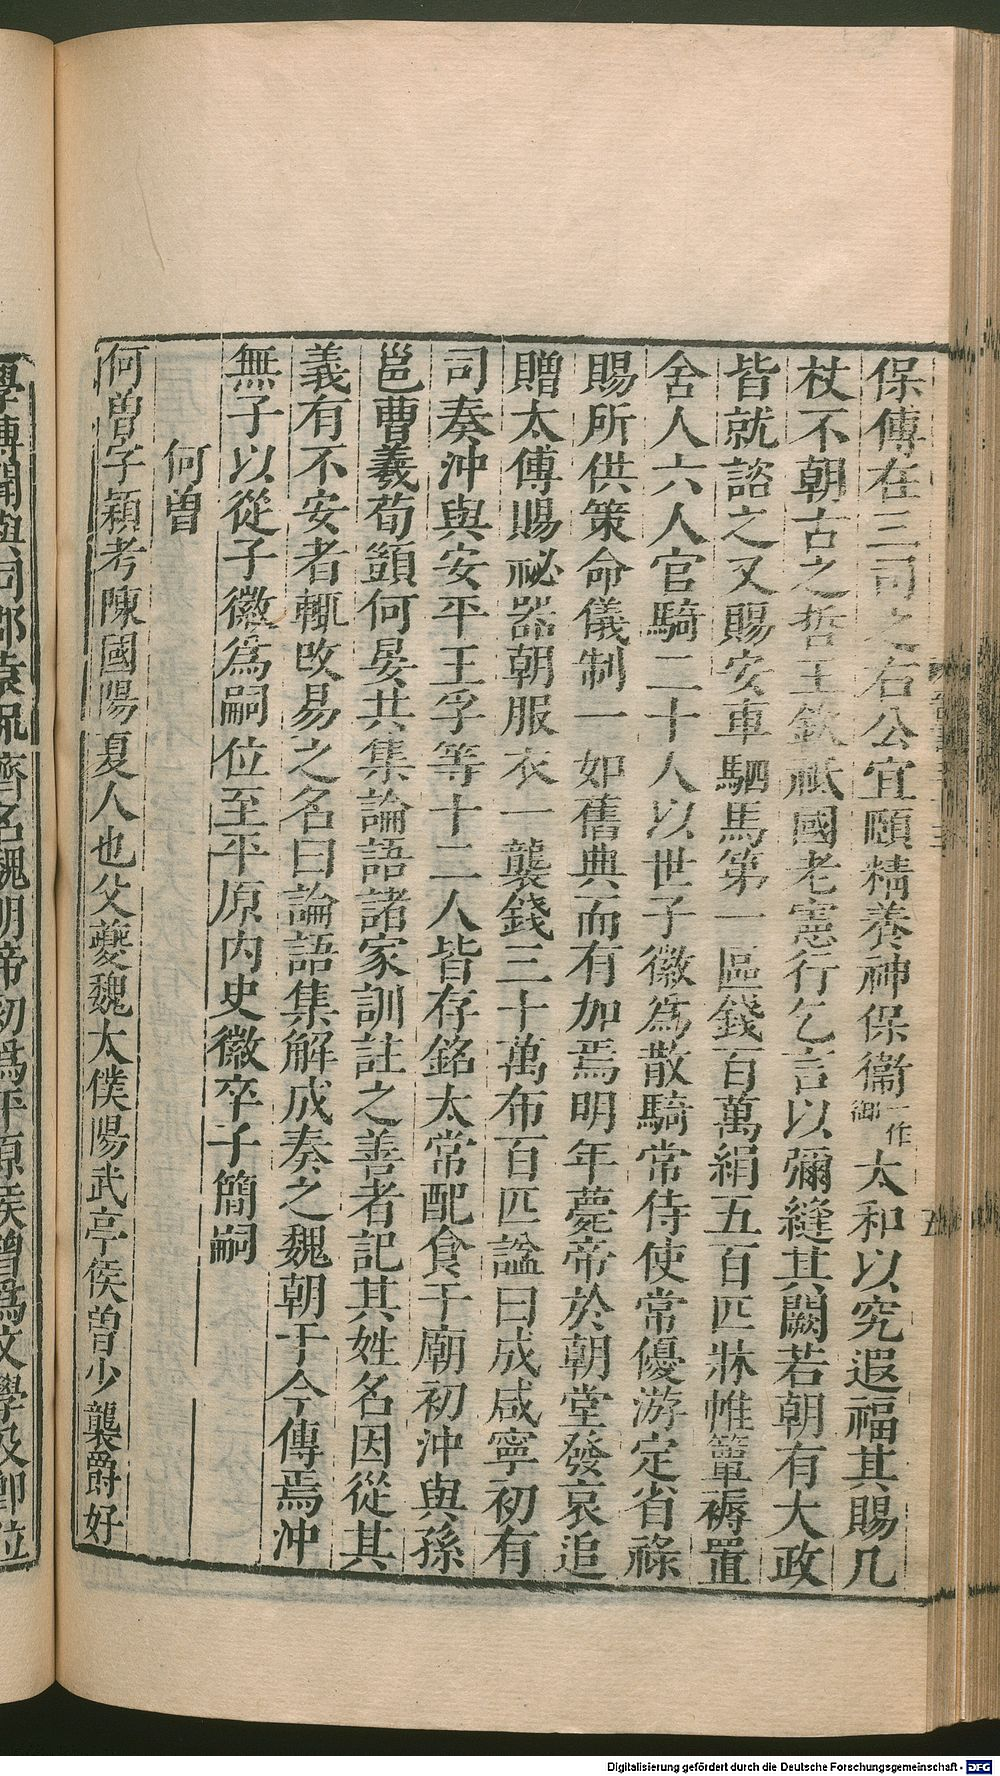 保傅在三司之右公宜頤精養神保衞一作御太和以究遐福其賜几
杖不朝古之哲王欽祇國老憲行乞言以彌縫其闕若朝有大政
皆就諮之又賜安車駟馬第一區錢百萬絹五百匹牀帷簟褥置
舍人六人官騎二十人以世子徽爲散騎常侍使常優游定省祿
賜所供策命儀制一如舊典而有加焉明年薨帝於朝堂發哀追
贈太傅賜祕器朝服衣一襲錢三十萬布百匹諡曰成咸寧初有
司奏沖與安平王孚等十二人皆存銘太常配食于廟初沖與孫
邕曹羲荀顗何晏共集論語諸家訓註之善者記其姓名因從其
義有不安者輒改易之名曰論語集解成奏之魏朝于今傳焉沖
無子以從子徽爲嗣位至平原內史徽卒子簡嗣
何曾
何曾字穎考陳國陽夏人也父夔魏太僕陽武亭侯曾少襲爵好
學博聞與同郡袁侃齊名魏明帝初爲平原侯曾爲文學及卽位
Digitalisierung gefördert durch die Deutsche Forschungsgemeinschaft - DFG